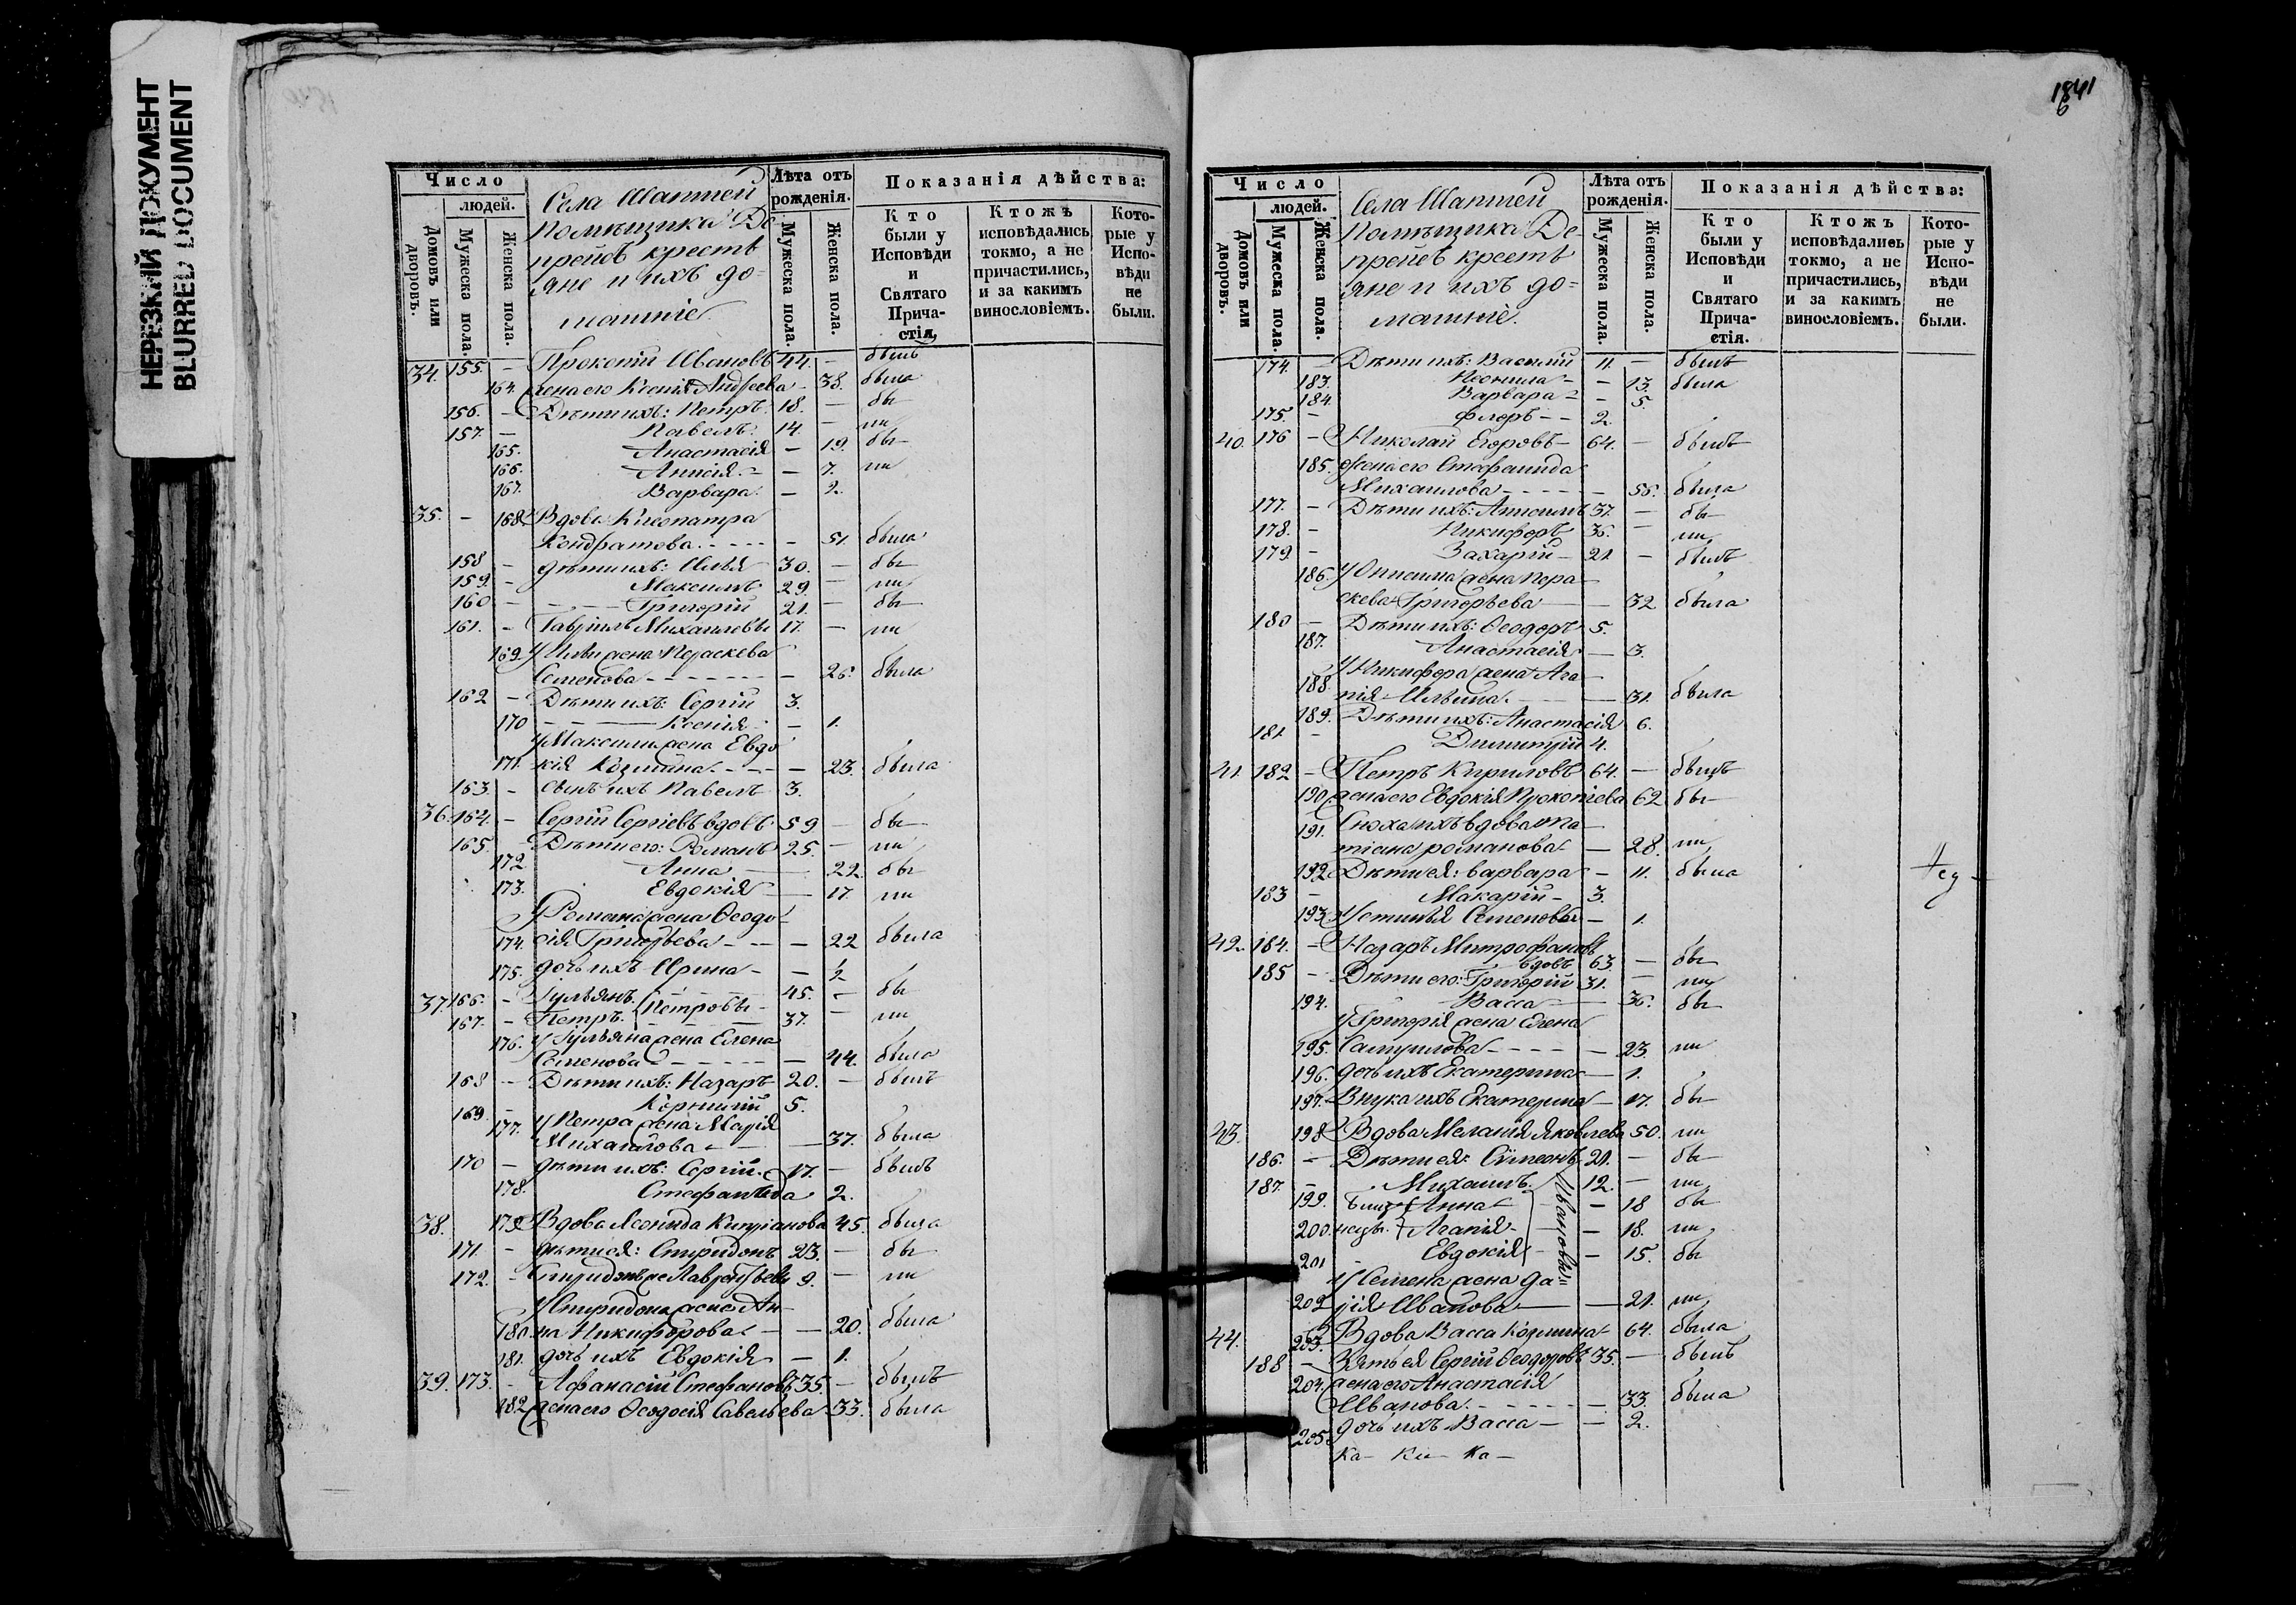 НЕРЕЗКИЙ ДОКУМЕНТ
BLURRED DOCUMENT
Число
людей.
Домовъ или дворовъ.
Мужеска пола.
Женска пола.
Села Шаптей
Помѣщика Де-
прейсъ крестъ
яне и ихъ до=
машніе
Лѣта отъ рожденія.
Мужеска пола.
Женска пола.
Показанія дѣйства:
Кто были у Исповѣди и Святаго Прича-стія.
Ктожъ исповѣдались токмо, а не причастились, и за какимъ винословіемъ.
Кото-рые у Испо-вѣди не были.
34. 155. – Прокопій Ивановъ 44. – былъ
164. жена его Ксенія Андреева – 38. была
156. – Дѣти ихъ: Петръ 18. – бы
157. – Павелъ 14. – ли
165. Анастасія – 19. бы
166. Анисія – – 7. ли
167. Варвара – 2.
35. – 168. Вдова Клеопатра
Кондратова – – – – – 51 была
158 – дѣти ихъ: Илья 30. – бы
159. – Максимъ 29. – ли
160 – – – Григорій 21. – бы
161. – Гавріилъ Михаиловъ 17. – ли
169. У Ильи жена Параскева
Семенова – – – – – – – 26. была
162 – Дѣти ихъ: Сергій 3.
170 – – – Ксенія – – 1.
У Максима жена Евдо
171. кія Козмина – – – – 23. была
163. – сынъ ихъ Павелъ 3.
36. 164. – Сергій Сергіевъ вдовъ 59 – бы
165. – Дѣти его: Романъ 25. – ли
172 Анна – 22. бы
173. Евдокія – 17. ли
У Романа жена Ѳеодо
174. сія Григорьева – – – – 22 была
175. дочь ихъ Ирина – – 1/2
37. 166. – Гульянъ 45. – бы
Петровы
167. – Петръ 37. – ли
176. У Гульяна жена Елена
Семенова – – – – – – 44. была
168 – Дѣти ихъ: Назаръ 20. – былъ
169. – Корнилій 5.
177. У Петра жена Марія
Михаилова – – – – 37. была
170 – дѣти ихъ: Сергій 17. – былъ
178. Стефанида 2.
38. 179 Вдова Леонида Кипріанова 45. была
171. – дѣти ея: Спиридонъ 23. – бы
172. – Спиридонъ же Лаврентьевъ 9. – ли
У Спиридона жена Ан-
180. на Никифорова – – – 20. была
181. дочь ихъ Евдокія – 1.
39. 173. – Аѳанасій Стефановъ 35. – былъ
182 жена его Ѳеодосія Савельева 33. была
1841
6
Число
людей.
Домовъ или дворовъ.
Мужеска пола.
Женска пола.
Села Шаптей
Помѣщика Де-
прейсъ крестъ
яне и ихъ до=
машніе.
Лѣта отъ рожденія.
Мужеска пола.
Женска пола.
Показанія дѣйства:
Кто были у Исповѣди и Святаго Прича-стія.
Ктожъ исповѣдались токмо, а не причастились, и за какимъ винословіемъ.
Кото-рые у Испо-вѣди не были.
174. – Дѣти ихъ: Василій 11. – былъ
183. Неонила – – 13. была
184. Варвара – – 5.
175. – Флоръ – – 2.
40. 176 – Николай Егоровъ – 64. – былъ
185. жена его Стефанида
Михаилова – – – – – – 56. была
177. – Дѣти ихъ: Анисимъ 37. – бы
178. – Никифоръ 36. – ли
179. – Захарій – 21 – былъ
186. У Онисима жена Пара
скева Григорьева – – 32 была
180 – Дѣти ихъ: Ѳеодоръ 5.
187. Анастасія – 3.
У Никифора жена Ага
188. пія Ильина – – 31. была
189. Дѣти ихъ: Анастасія 6.
181 – Димитрій 4.
41 182 – Петръ Кириловъ 64. – былъ
190. жена его Евдокія Прокопіева 62 бы
191. Сноха ихъ вдова Та
тіана Романова – 28. ли
192. Дѣти ея: Варвара – 11. была
183 – Макарій – 3.
193. Устинья Семенова – 1.
42. 184. – Назаръ Митрофановъ
вдовъ 63. – бы
185 – Дѣти его: Григорій 31. – ли
194. Васса – 36. бы
У Григорія жена Елена
195. Самуилова – – – – – 23. ли
196. дочь ихъ Екатерина – 1.
197. Внука ихъ Екатерина – 17. бы
43. 198 Вдова Меланія Яковлева 50. ли
186. – Дѣти ея: Сѵмеонъ 21. – бы
187. – Михаилъ 12. – ли
199. близ Анна – 18 бы
200. нецы Агапія – – 18. ли
201 Евдокія – – 15. бы
Ивановы=
У Семена жена Да=
202 рія Иванова – – 21. ли
44. 203. Вдова Васса Козмина 64. была
188 – Зять ея Сергій Ѳеодоровъ 35. – былъ
204. жена его Анастасія
Иванова – – – – – – 33. была
205. дочь ихъ Васса – – 2.
Ка – Ки – Ка –